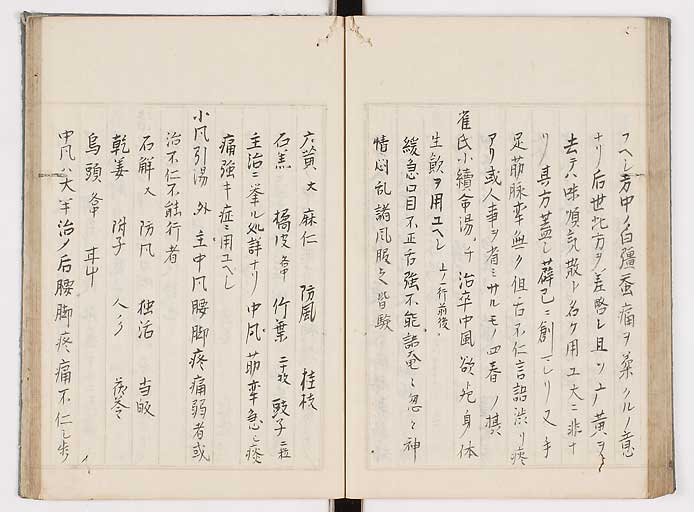 フヘシ方中ノ白彊蚕痛ヲ兼タルノ意
ナリ后世此方ヲ差略シ且ツ上黄ヲ
去テ八味順気散ト名ケ用ユ大ニ非ナ
リ其方蓋シ薜已ニ創マレリ又手
足筋脉攣無ク但舌不仁言語渋リ痰
アリ或人事ヲ省ミサルモノ四春ノ撰
崔氏小續命湯 治卒中風欲死身体
緩急口目不正舌強不能語奄々忽々神
情悶乱諸風服之皆験
生飲ヲ用ユヘシ 上ノ一行前後
大黄 麻仁 防風 桂枝
石羔 橘皮 竹葉 豉子
主治ニ挙ル処詳ナリ中风筋攣急シ痰
痛強キ症ニ用ユヘシ
小风引湯 外 主中风腰脚疼痛弱者或
治不仁不能行者
石解 防风 独活 当皈
乾姜 附子 人 茯苓
烏頭
中风ハ大半治ノ后腰脚疼痛不仁シ歩